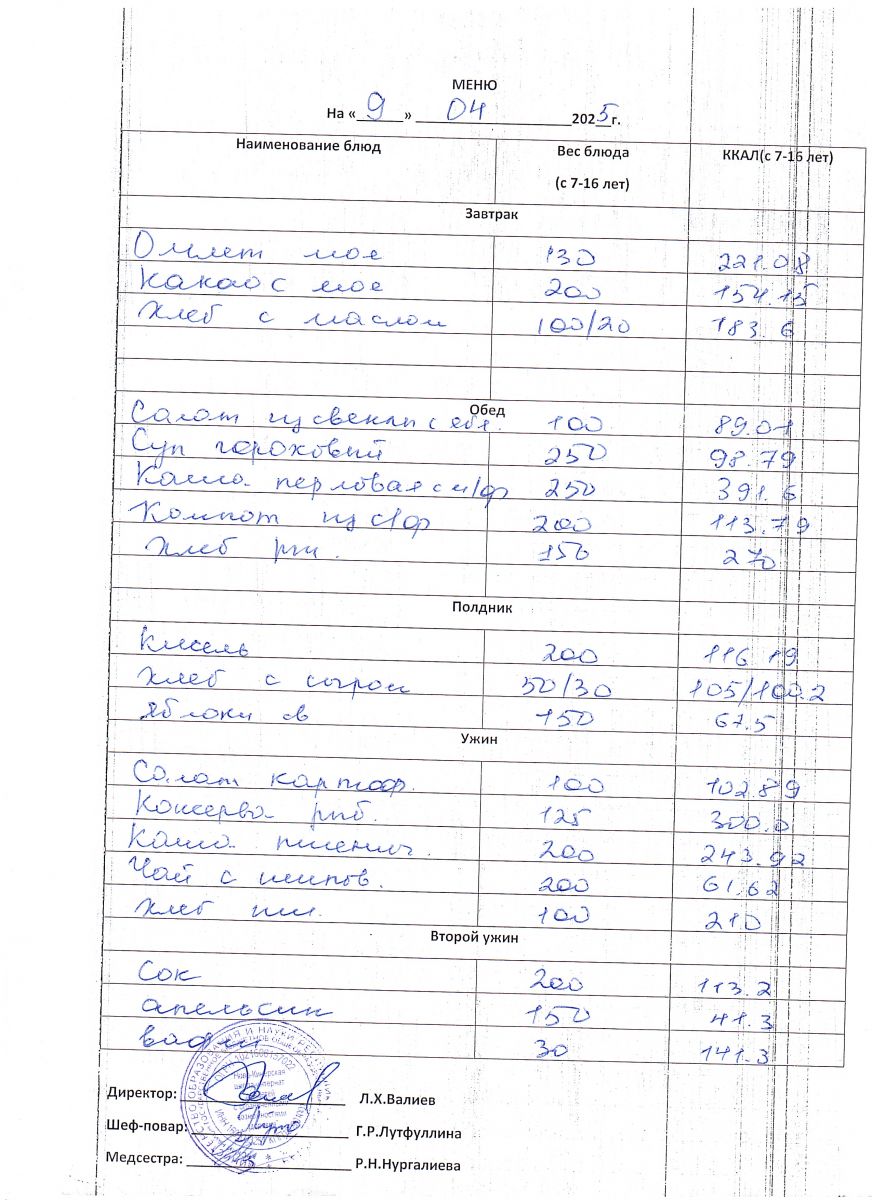 МЕНЮ
На « 9 » 04 2025г.
Наименование блюд Вес блюда (с 7-16 лет) ККАЛ(с 7-16 лет)
Завтрак
Омлет мол 130 221.08
Какао с мол 200 154.15
Хлеб с маслом 100/20 183.6
Обед
Салат из свеклы с ябл. 100 89.01
Суп гороховый 250 98.79
Каша перловая с м/ф 250 391.6
Компот из с/ф 200 113.79
Хлеб рж. 150 270
Полдник
Кисель 200 116.19
Хлеб с сыром 50/30 105/100.2
Яблоки св 150 67.5
Ужин
Салат картоф. 100 102.89
Консерва рыб. 125 300.0
Каша пшенич. 200 243.92
Чай с шипов. 200 61.62
Хлеб пш. 100 210
Второй ужин
Сок 200 113.2
апельсин 150 41.3
вафли 30 141.3
Директор: Л.Х.Валиев
Шеф-повар: Г.Р.Лутфуллина
Медсестра: Р.Н.Нургалиева